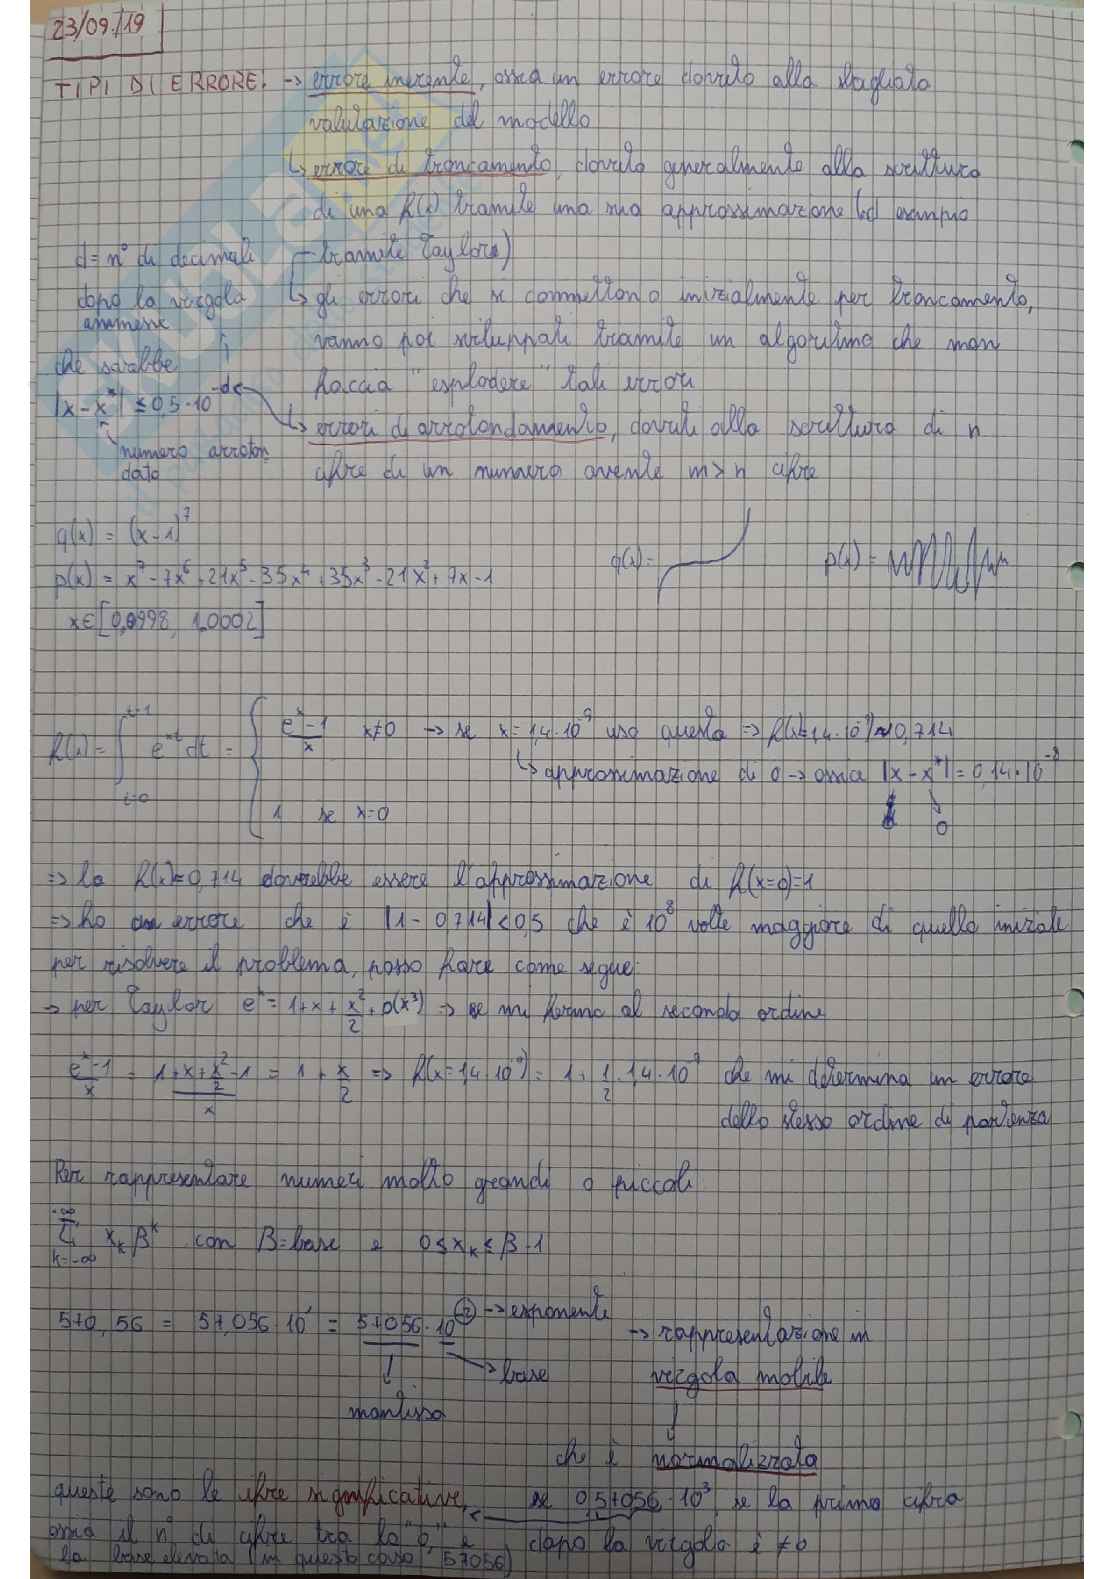 23/09/19
TIPI DI ERRORE. → errore inerente, ossia un errore dovuto alla sbagliata
valutazione del modello
↳ errore di troncamento, dovuto generalmente alla scrittura
di una f(x) tramite una sua approssimazione (ad esempio
tramite Taylor)
↳ gli errori che si commettono inizialmente per troncamento,
vanno poi sviluppati tramite un algoritmo che non
faccia "esplodere" tali errori
↳ errori di arrotondamento, dovuti alla scrittura di n
cifre di un numero avente m > n cifre
d = n° di decimali
dopo la virgola
ammesse
che sarebbe
|x - x*| ≤ 0,5 · 10^-d
numero arroton
dato
q(x) = (x-1)^7
p(x) = x^7 - 7x^6 + 21x^5 - 35x^4 + 35x^3 - 21x^2 + 7x - 1
x ∈ [0,9998, 1,0002]
q(x) =
p(x) =
f(x) = ∫ t=0 t=1 e^xt dt = { e^x-1 / x x≠0 → se x = 1,4 · 10^-9 uso questa ⇒ f(x=1,4 · 10^-9) ≈ 0,714
↳ approssimazione di 0 → ossia |x - x*| = 0,14 · 10^-8
0
1 se x=0
⇒ la f(x)=0,714 dovrebbe essere l'approssimazione di f(x=0)=1
⇒ ho un errore che è |1 - 0,714| < 0,5 che è 10^8 volte maggiore di quello iniziale
per risolvere il problema, posso fare come segue:
→ per Taylor e^x = 1 + x + x^2/2 + o(x^3) → se mi fermo al secondo ordine
e^x-1 / x = 1+x+x^2/2-1 / x = 1 + x/2 ⇒ f(x=1,4 · 10^-9) = 1 + 1/2 · 1,4 · 10^-9 che mi determina un errore
dello stesso ordine di partenza
Per rappresentare numeri molto grandi o piccoli
Σ k=-∞ x_k β^k con β=base e 0 ≤ x_k ≤ β-1
570,56 = 57,056 · 10^1 = 57056 · 10^-2 → esponente
→ base
mantissa
→ rappresentazione in
virgola mobile
che è normalizzata
se 0,57056 · 10^3, se la prima cifra
dopo la virgola è ≠ 0
queste sono le cifre significative,
ossia il n° di cifre tra lo "0," e
la base elevata (in questo caso, 57056)